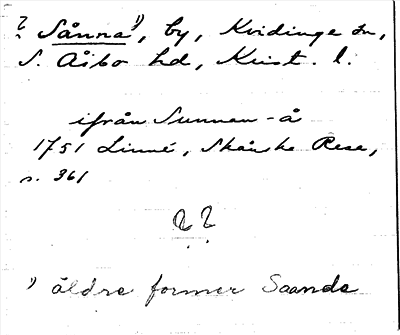 ? Sånna¹⁾, by, Kvidinge sn,
S. Åsbo hd, Krist. l.
ifrån Sunnan-å
1751 Linné, Skånska Resa,
s. 361
? ?
¹⁾ äldre former Saande